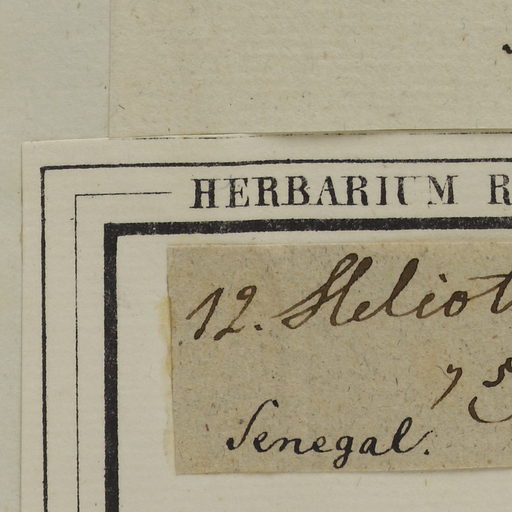 HERBARIUM R
12. Heliot
75
Senegal.